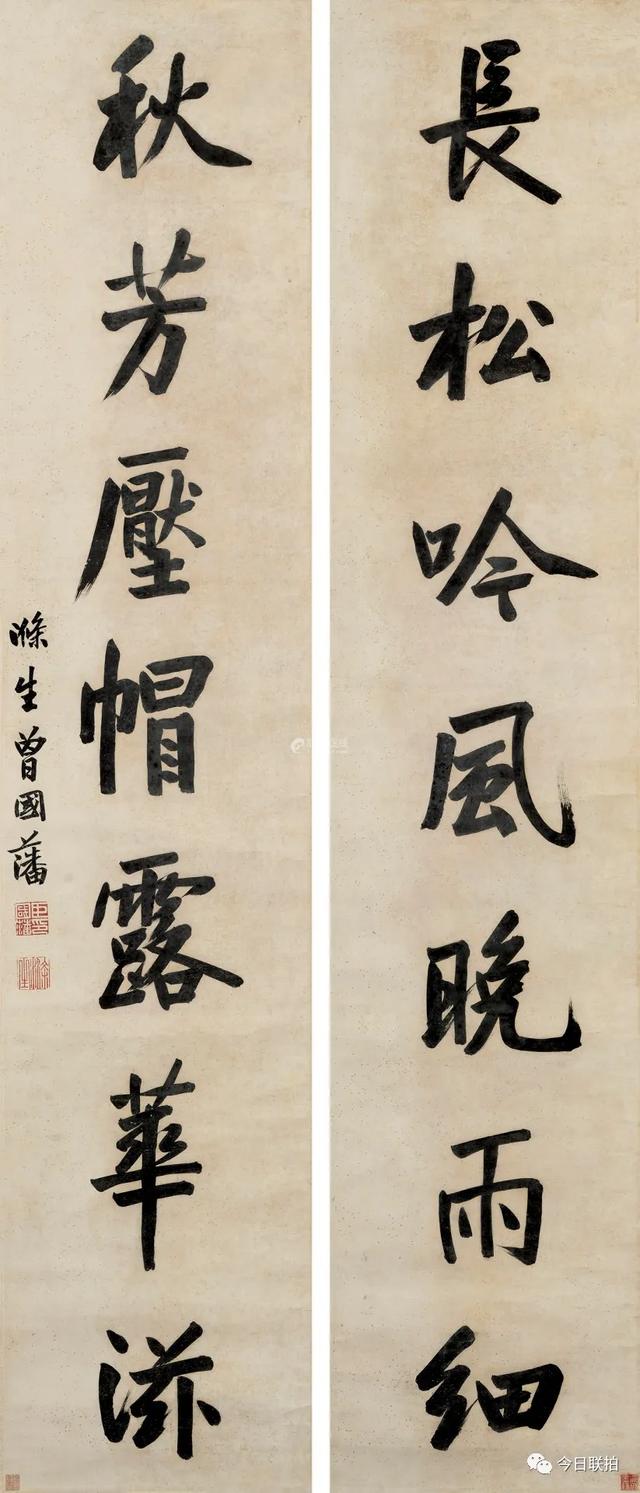 長松吟風晚雨細
秋芳壓帽露華滋
滌生曾國藩
今日联拍